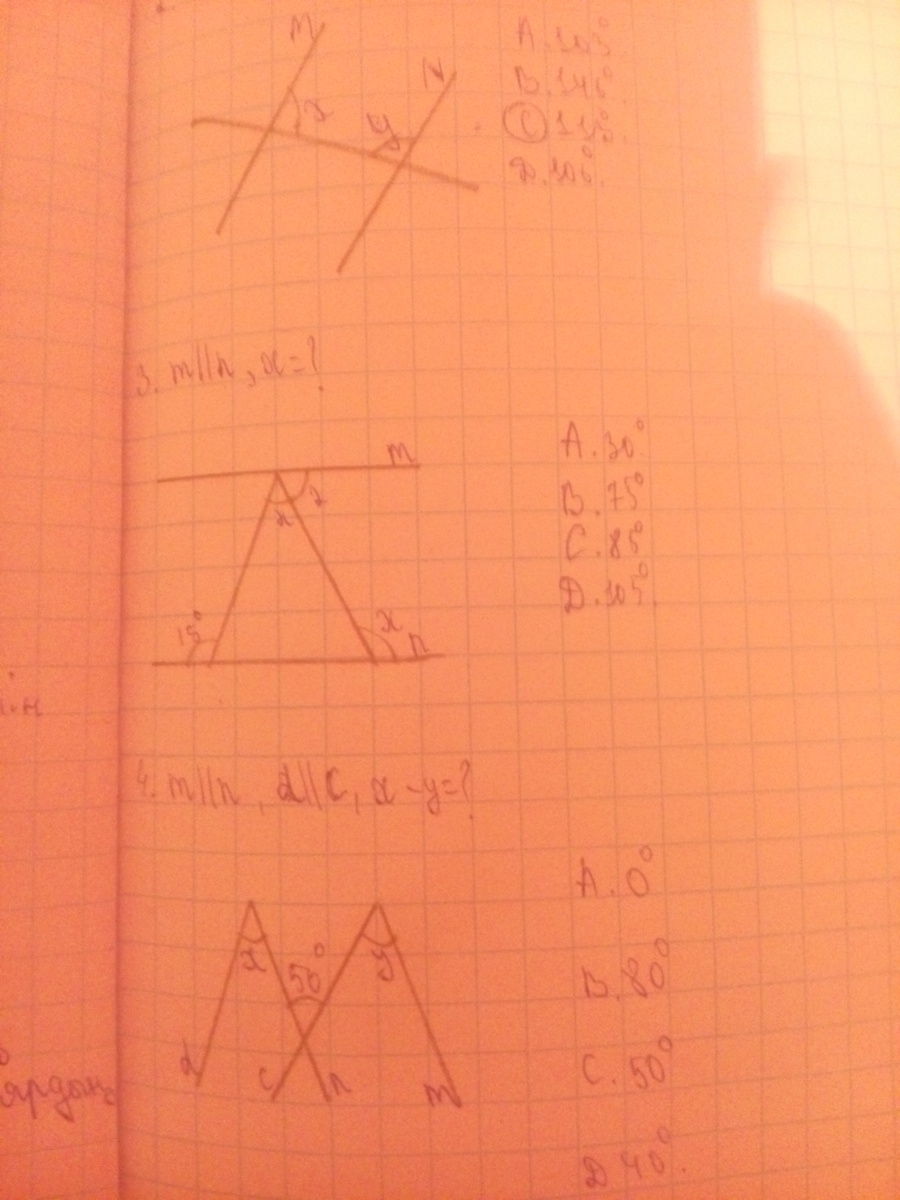 M
N
x
y
A. 105°
B. 146°
C 115°
D. 106°.
3. m||n, x=?
m
x
2
15°
x
n
A. 30°
B. 75°
C. 85°
D. 105°.
4. m||n, d||c, x-y=?
x
50°
y
d
c
n
m
A. 0°
B. 80°
C. 50°
D 40°.